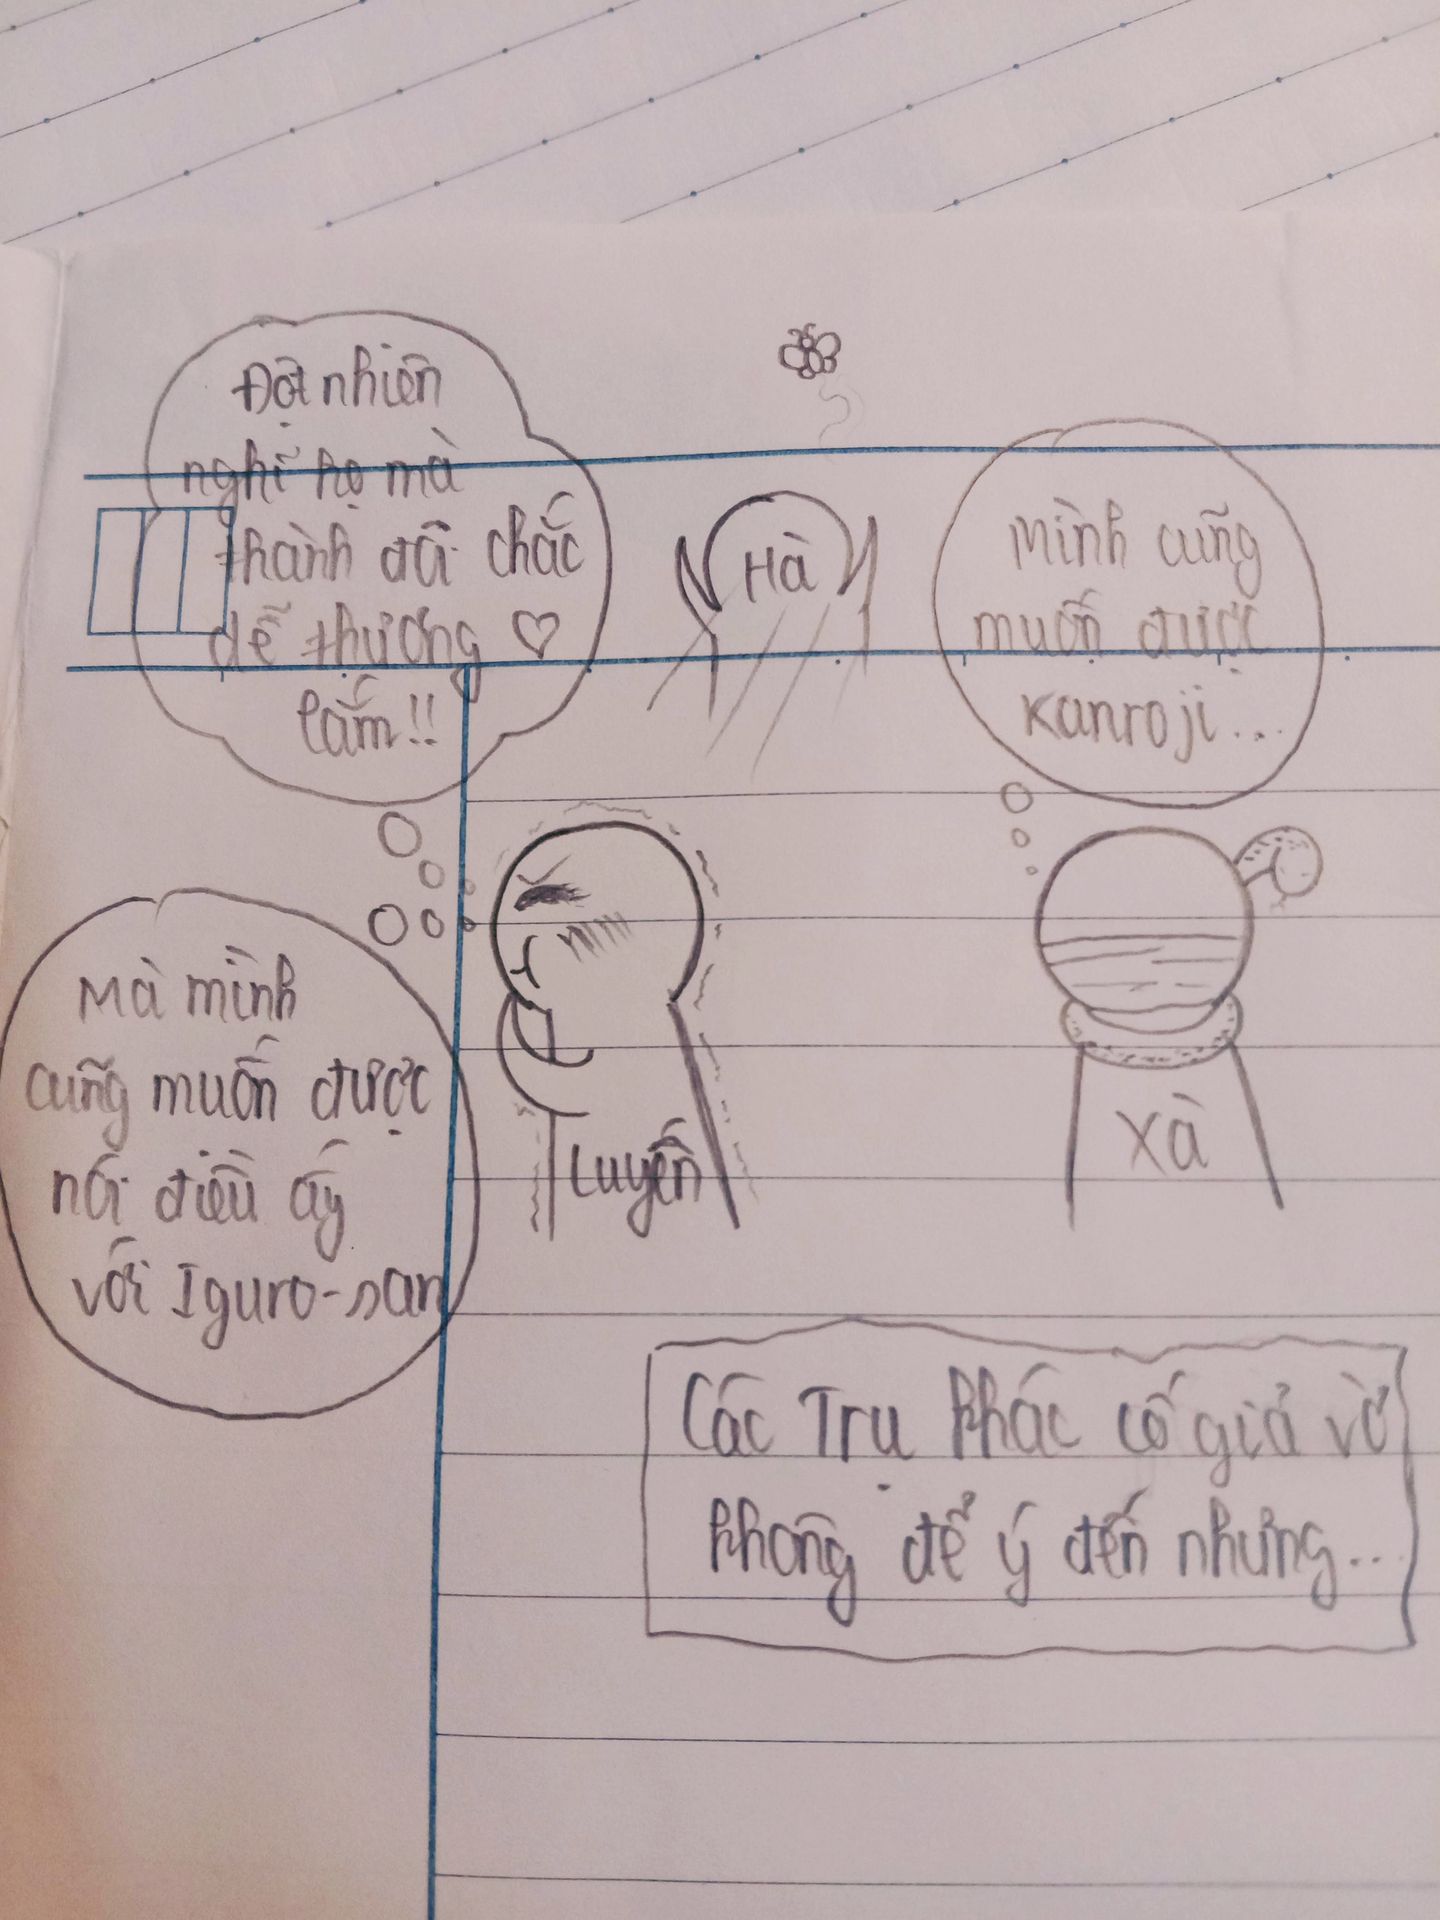 Đột nhiên
nghĩ họ mà
thành đôi chắc
dễ thương ♡
lắm!!
Hà
Mình cũng
muốn được
Kanroji...
Mà mình
cũng muốn được
nói điều ấy
với Iguro-san
Luyến
Xà
Các Trụ khác cố giả vờ
không để ý đến nhưng...